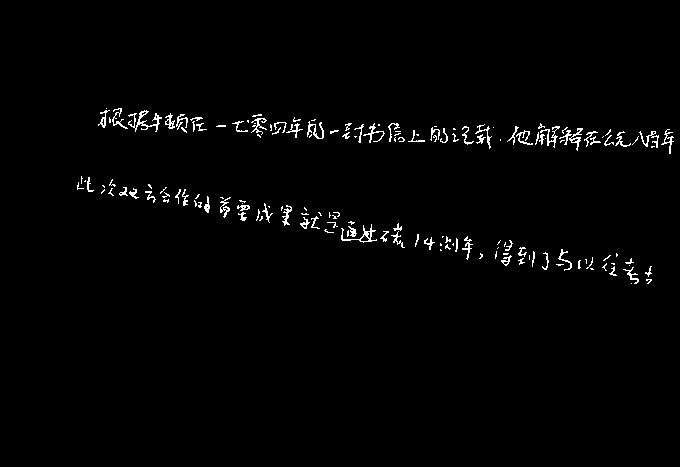 根据牛顿在一七零四年的一封书信上的记载,他解释在公元八百年
此次双方合作的首要成果就是通过碳14测年,得到了与以往考古